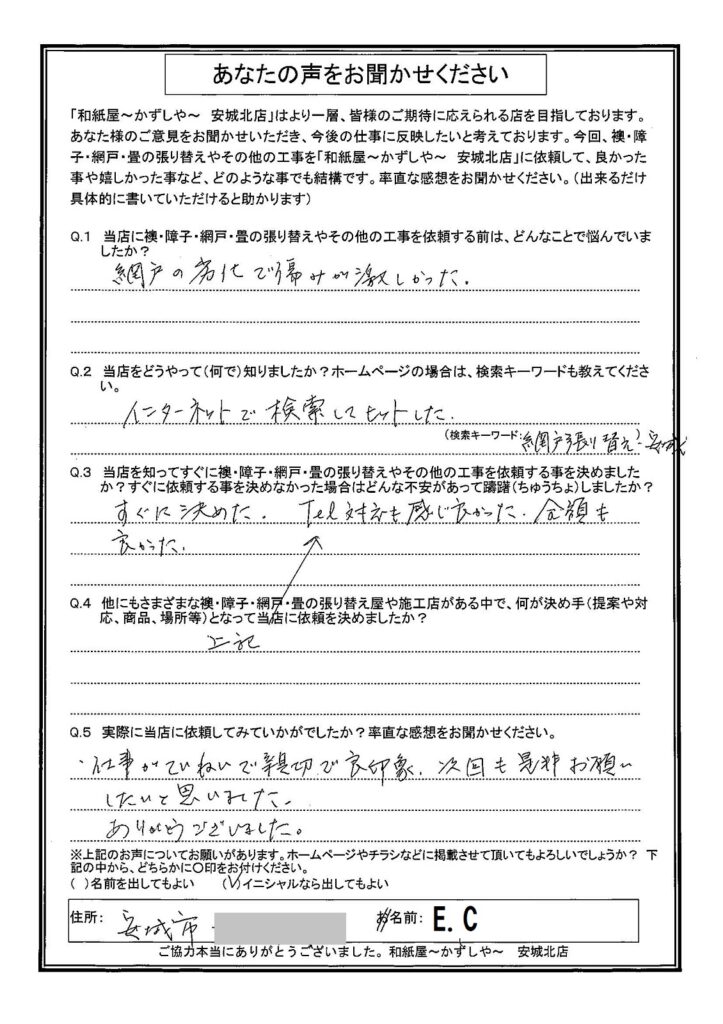 あなたの声をお聞かせください
「和紙屋~かずしや~　安城北店」はより一層、皆様のご期待に応えられる店を目指しております。
あなた様のご意見をお聞かせいただき、今後の仕事に反映したいと考えております。今回、襖・障
子・網戸・畳の張り替えやその他の工事を「和紙屋~かずしや~　安城北店」に依頼して、良かった
事や嬉しかった事など、どのような事でも結構です。率直な感想をお聞かせください。(出来るだけ
具体的に書いていただけると助かります)
Q.1　当店に襖・障子・網戸・畳の張り替えやその他の工事を依頼する前は、どんなことで悩んでいま
したか?
網戸の劣化で傷みが激しかった。
Q.2　当店をどうやって(何で)知りましたか?ホームページの場合は、検索キーワードも教えてくださ
い。
インターネットで検索してヒットした.
(検索キーワード:網戸張り替え 安城
Q.3　当店を知ってすぐに襖・障子・網戸・畳の張り替えやその他の工事を依頼する事を決めました
か?すぐに依頼する事を決めなかった場合はどんな不安があって躊躇(ちゅうちょ)しましたか?
すぐに決めた. Tel対応も感じ良かった. 金額も
良かった.
Q.4　他にもさまざまな襖・障子・網戸・畳の張り替え屋や施工店がある中で、何が決め手(提案や対
応、商品、場所等)となって当店に依頼を決めましたか?
上記
Q.5　実際に当店に依頼してみていかがでしたか?率直な感想をお聞かせください。
・仕事がていねいで親切で良印象. 次回も是非お願い
したいと思いました.
ありがとうございました。
※上記のお声についてお願いがあります。ホームページやチラシなどに掲載させて頂いてもよろしいでしょうか?　下
記の中から、どちらかに○印をお付けください。
(　)名前を出してもよい　　(✓)イニシャルなら出してもよい
住所:　安城市　お名前:　E.C
ご協力本当にありがとうございました。和紙屋~かずしや~　安城北店